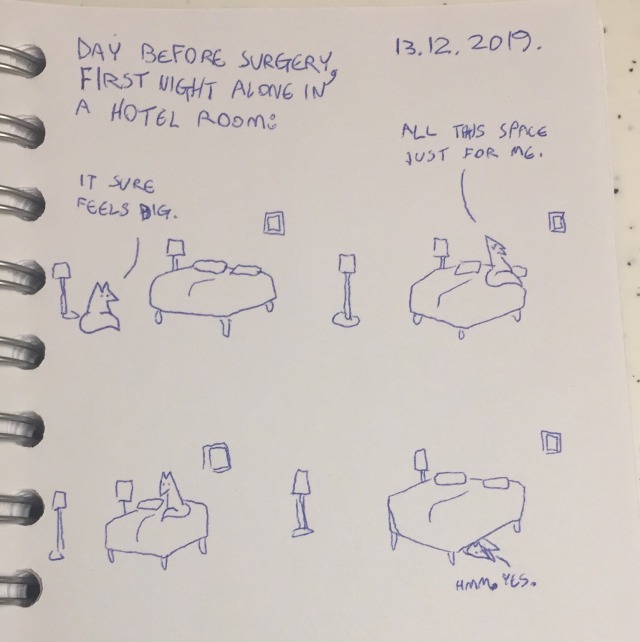 DAY BEFORE SURGERY,
FIRST NIGHT ALONE IN
A HOTEL ROOM:
13.12.2019.
IT SURE
FEELS BIG.
ALL THIS SPACE
JUST FOR ME.
HMM. YES.